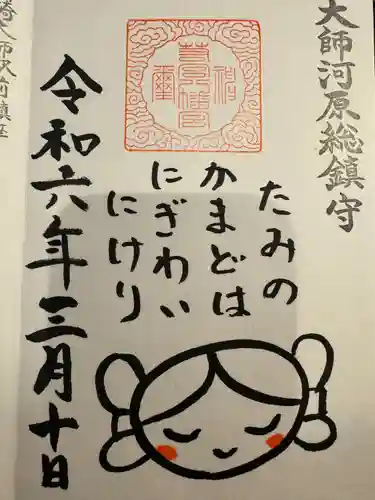 大師河原総鎮守
たみの
かまどは
にぎわい
にけり
令和六年三月十日